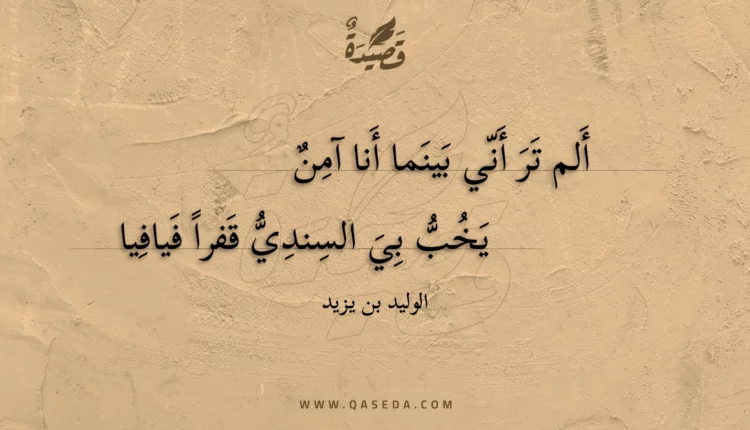 قَصِيدَةٌ
أَلم تَرَ أَنّي بَينَما أَنا آمِنٌ
يَخُبُّ بِيَ السِندِيُّ قَفراً فَيافِيا
الوليد بن يزيد
WWW.QASEDA.COM